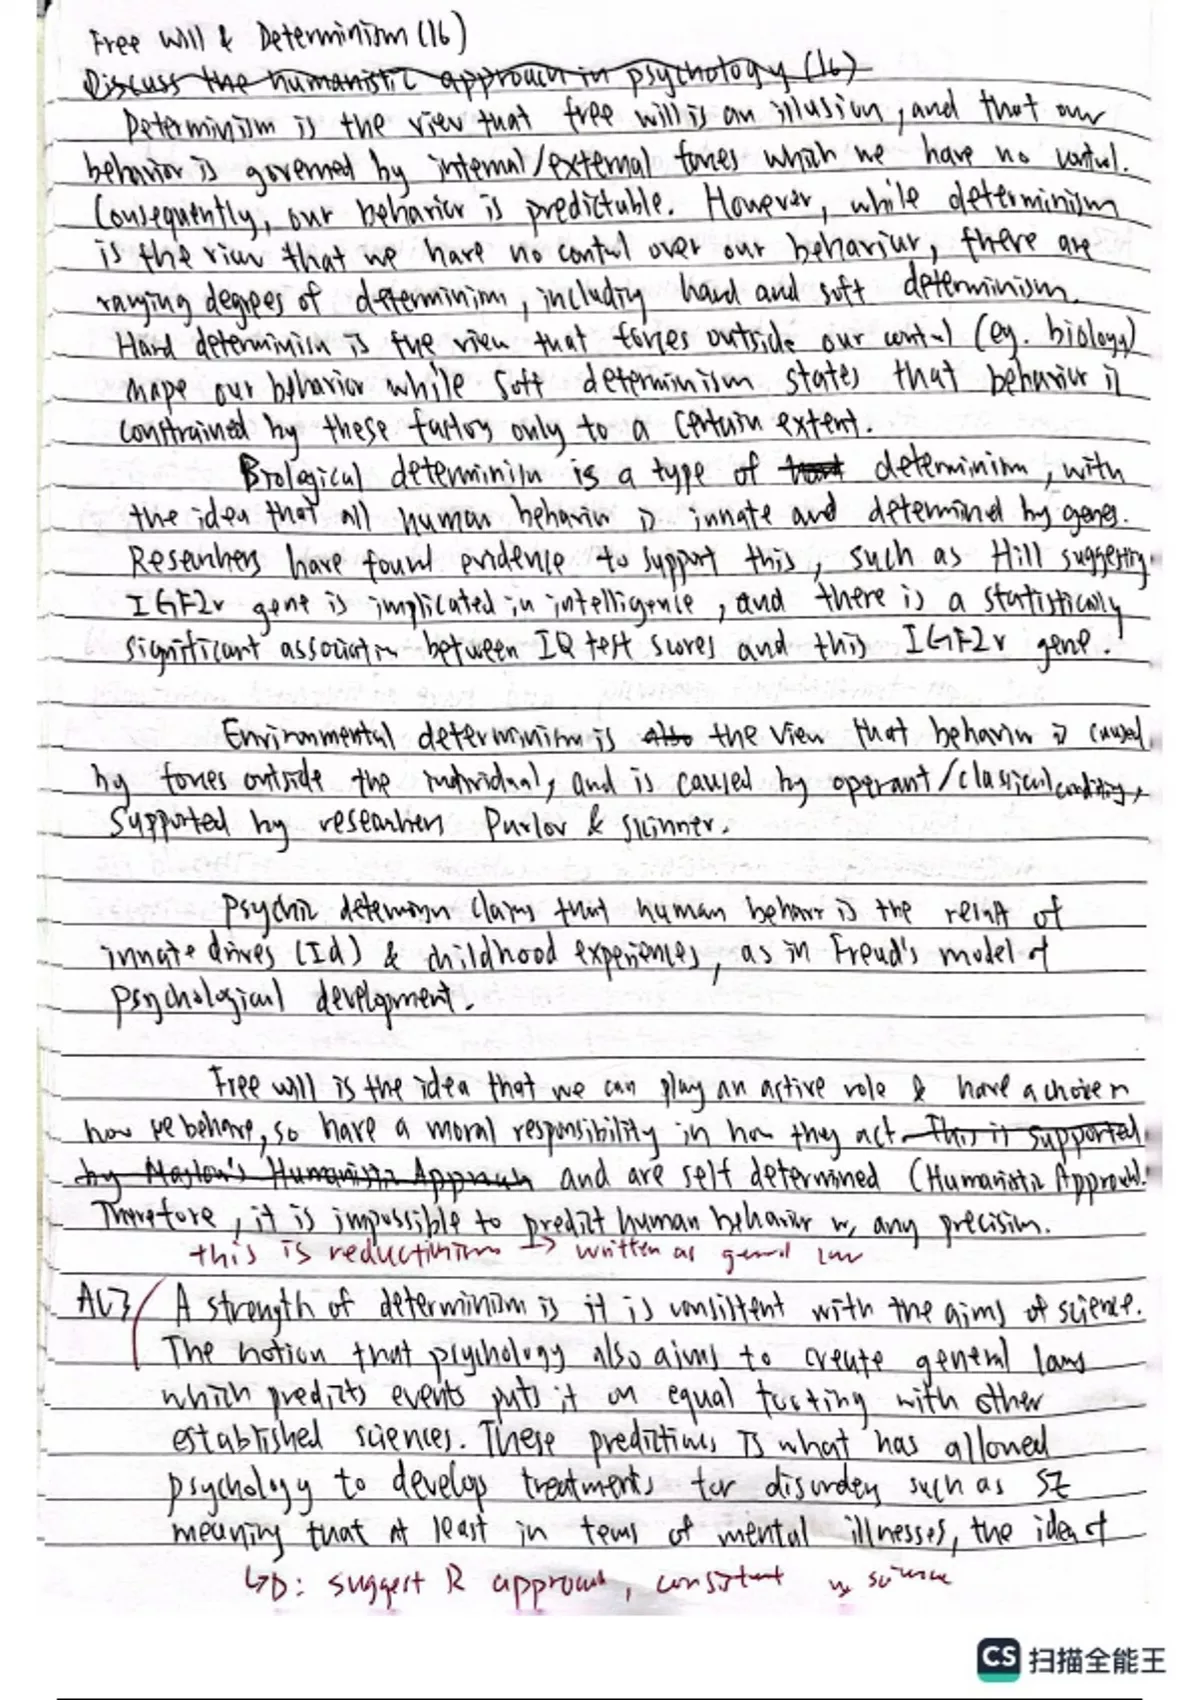 Free will & Determinism (16)
Discuss the humanistic approach in psychology (16)
Determinism is the view that free will is an illusion, and that our
behavior is governed by internal/external forces which we have no control.
Consequently, our behavior is predictable. However, while determinism
is the view that we have no control over our behaviour, there are
ranging degrees of determinism, including hard and soft determinism.
Hard determinism is the view that forces outside our control (eg. biology)
shape our behavior while soft determinism states that behavior is
constrained by these factors only to a certain extent.
Biological determinism is a type of hard determinism, with
the idea that all human behavior is innate and determined by genes.
Researchers have found evidence to support this, such as Hill suggesting
IGF2r gene is implicated in intelligence, and there is a statistically
significant association between IQ test scores and this IGF2r gene.
Environmental determinism is also the view that behavior is caused
by forces outside the individual, and is caused by operant/classical conditioning,
supported by researchers Pavlov & Skinner.
Psychic determinism claims that human behavior is the result of
innate drives (Id) & childhood experiences, as in Freud's model of
psychological development.
Free will is the idea that we can play an active role & have a choice in
how we behave, so have a moral responsibility in how they act. This is supported
by Maslow's Humanistic Approach and are self determined (Humanistic Approach).
Therefore, it is impossible to predict human behavior w, any precision.
this is reductionism → written as general law
AC3 A strength of determinism is it is consistent with the aims of science.
The notion that psychology also aims to create general laws
which predicts events puts it on equal footing with other
established sciences. These predictions is what has allowed
psychology to develop treatments for disorders such as SZ
meaning that at least in terms of mental illnesses, the idea of
↳D: suggest R approach, consistent w science
CS 扫描全能王